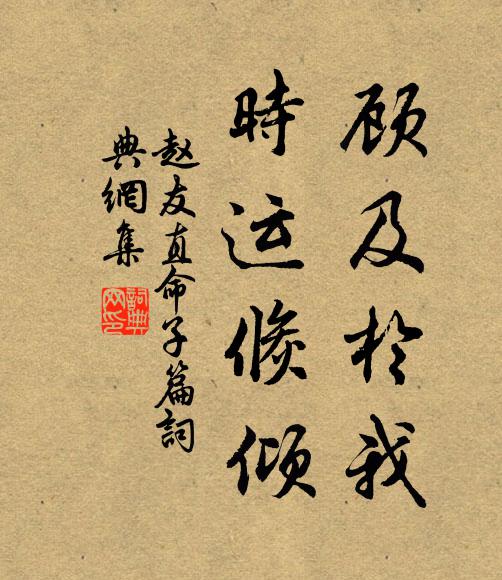 顾及於我
时运倏倾
赵友直命子篇詞
典網集
詞典
网印